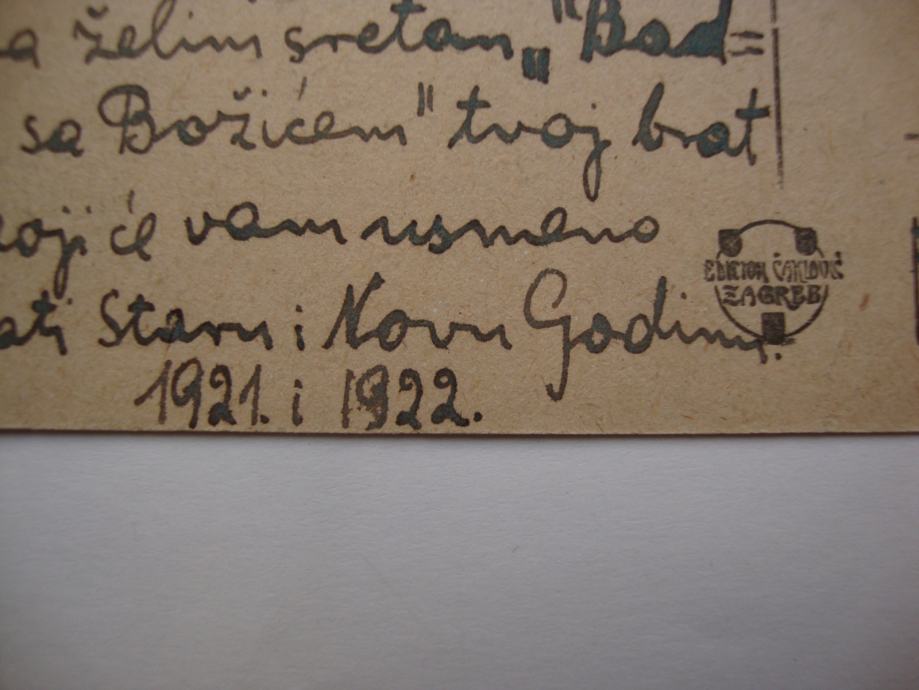 a želim sretan „"Bad=
sa Božićem" tvoj brat
koji će vam usmeno
ati Staru i Novu Godinu.
1921. i 1922.
EDITION ČAKLOVIĆ
ZAGREB